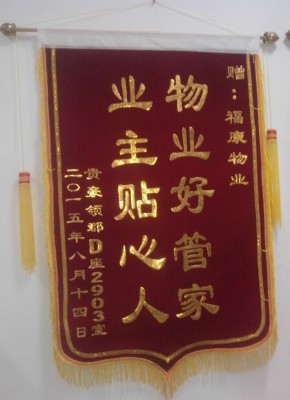 赠：福康物业
物业好管家
业主贴心人
贵豪领郡D座2903室
二〇一五年八月十四日